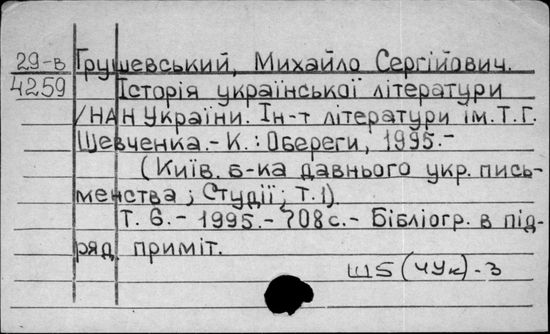 29-в Грушевський, Михайло Сергійович.
4259 Історія української літератури
/НАН України. Ін-т літератури ім. Т.Г.
Шевченка.- К.: Обереги, 1995.-
(Київ. б-ка давнього укр. пись-
менства; Студії; т.1).
Т. 6.- 1995.- 708 с.- Бібліогр. в під-
ряд. приміт.
Ш5(4Ук)-3